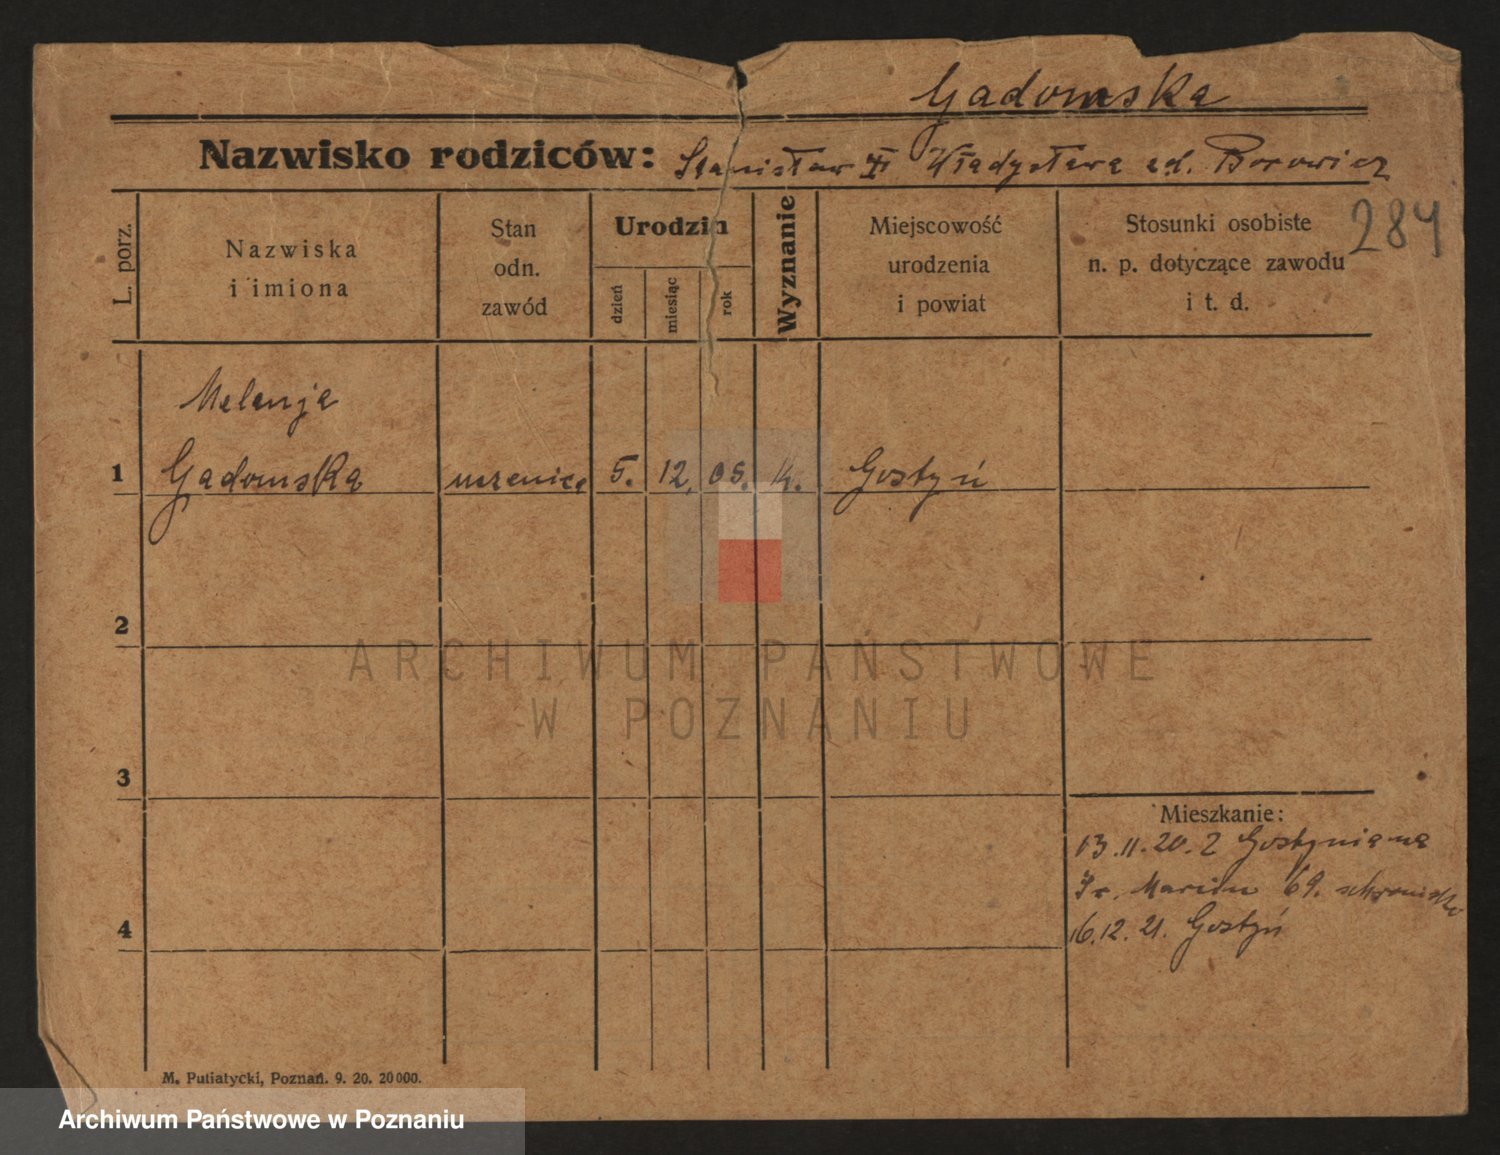 Gadomska
Nazwisko rodziców: Stanisław Władysława Borowicz
284
L. porz.
Nazwiska
i imiona
Stan
odn.
zawód
Urodzin
dzień
miesiąc
rok
Wyznanie
Miejscowość
urodzenia
i powiat
Stosunki osobiste
n. p. dotyczące zawodu
i t. d.
Melanja
1 Gadomska uczenica 5. 12. 05. k. Gostyń
2
3
4
Mieszkanie:
13.11.20. z Gostynia na
Marcin 69. schronisko
16.12.21. Gostyń
M. Putiatycki, Poznań. 9. 20. 20000.
ARCHIWUM PAŃSTWOWE
W POZNANIU
Archiwum Państwowe w Poznaniu